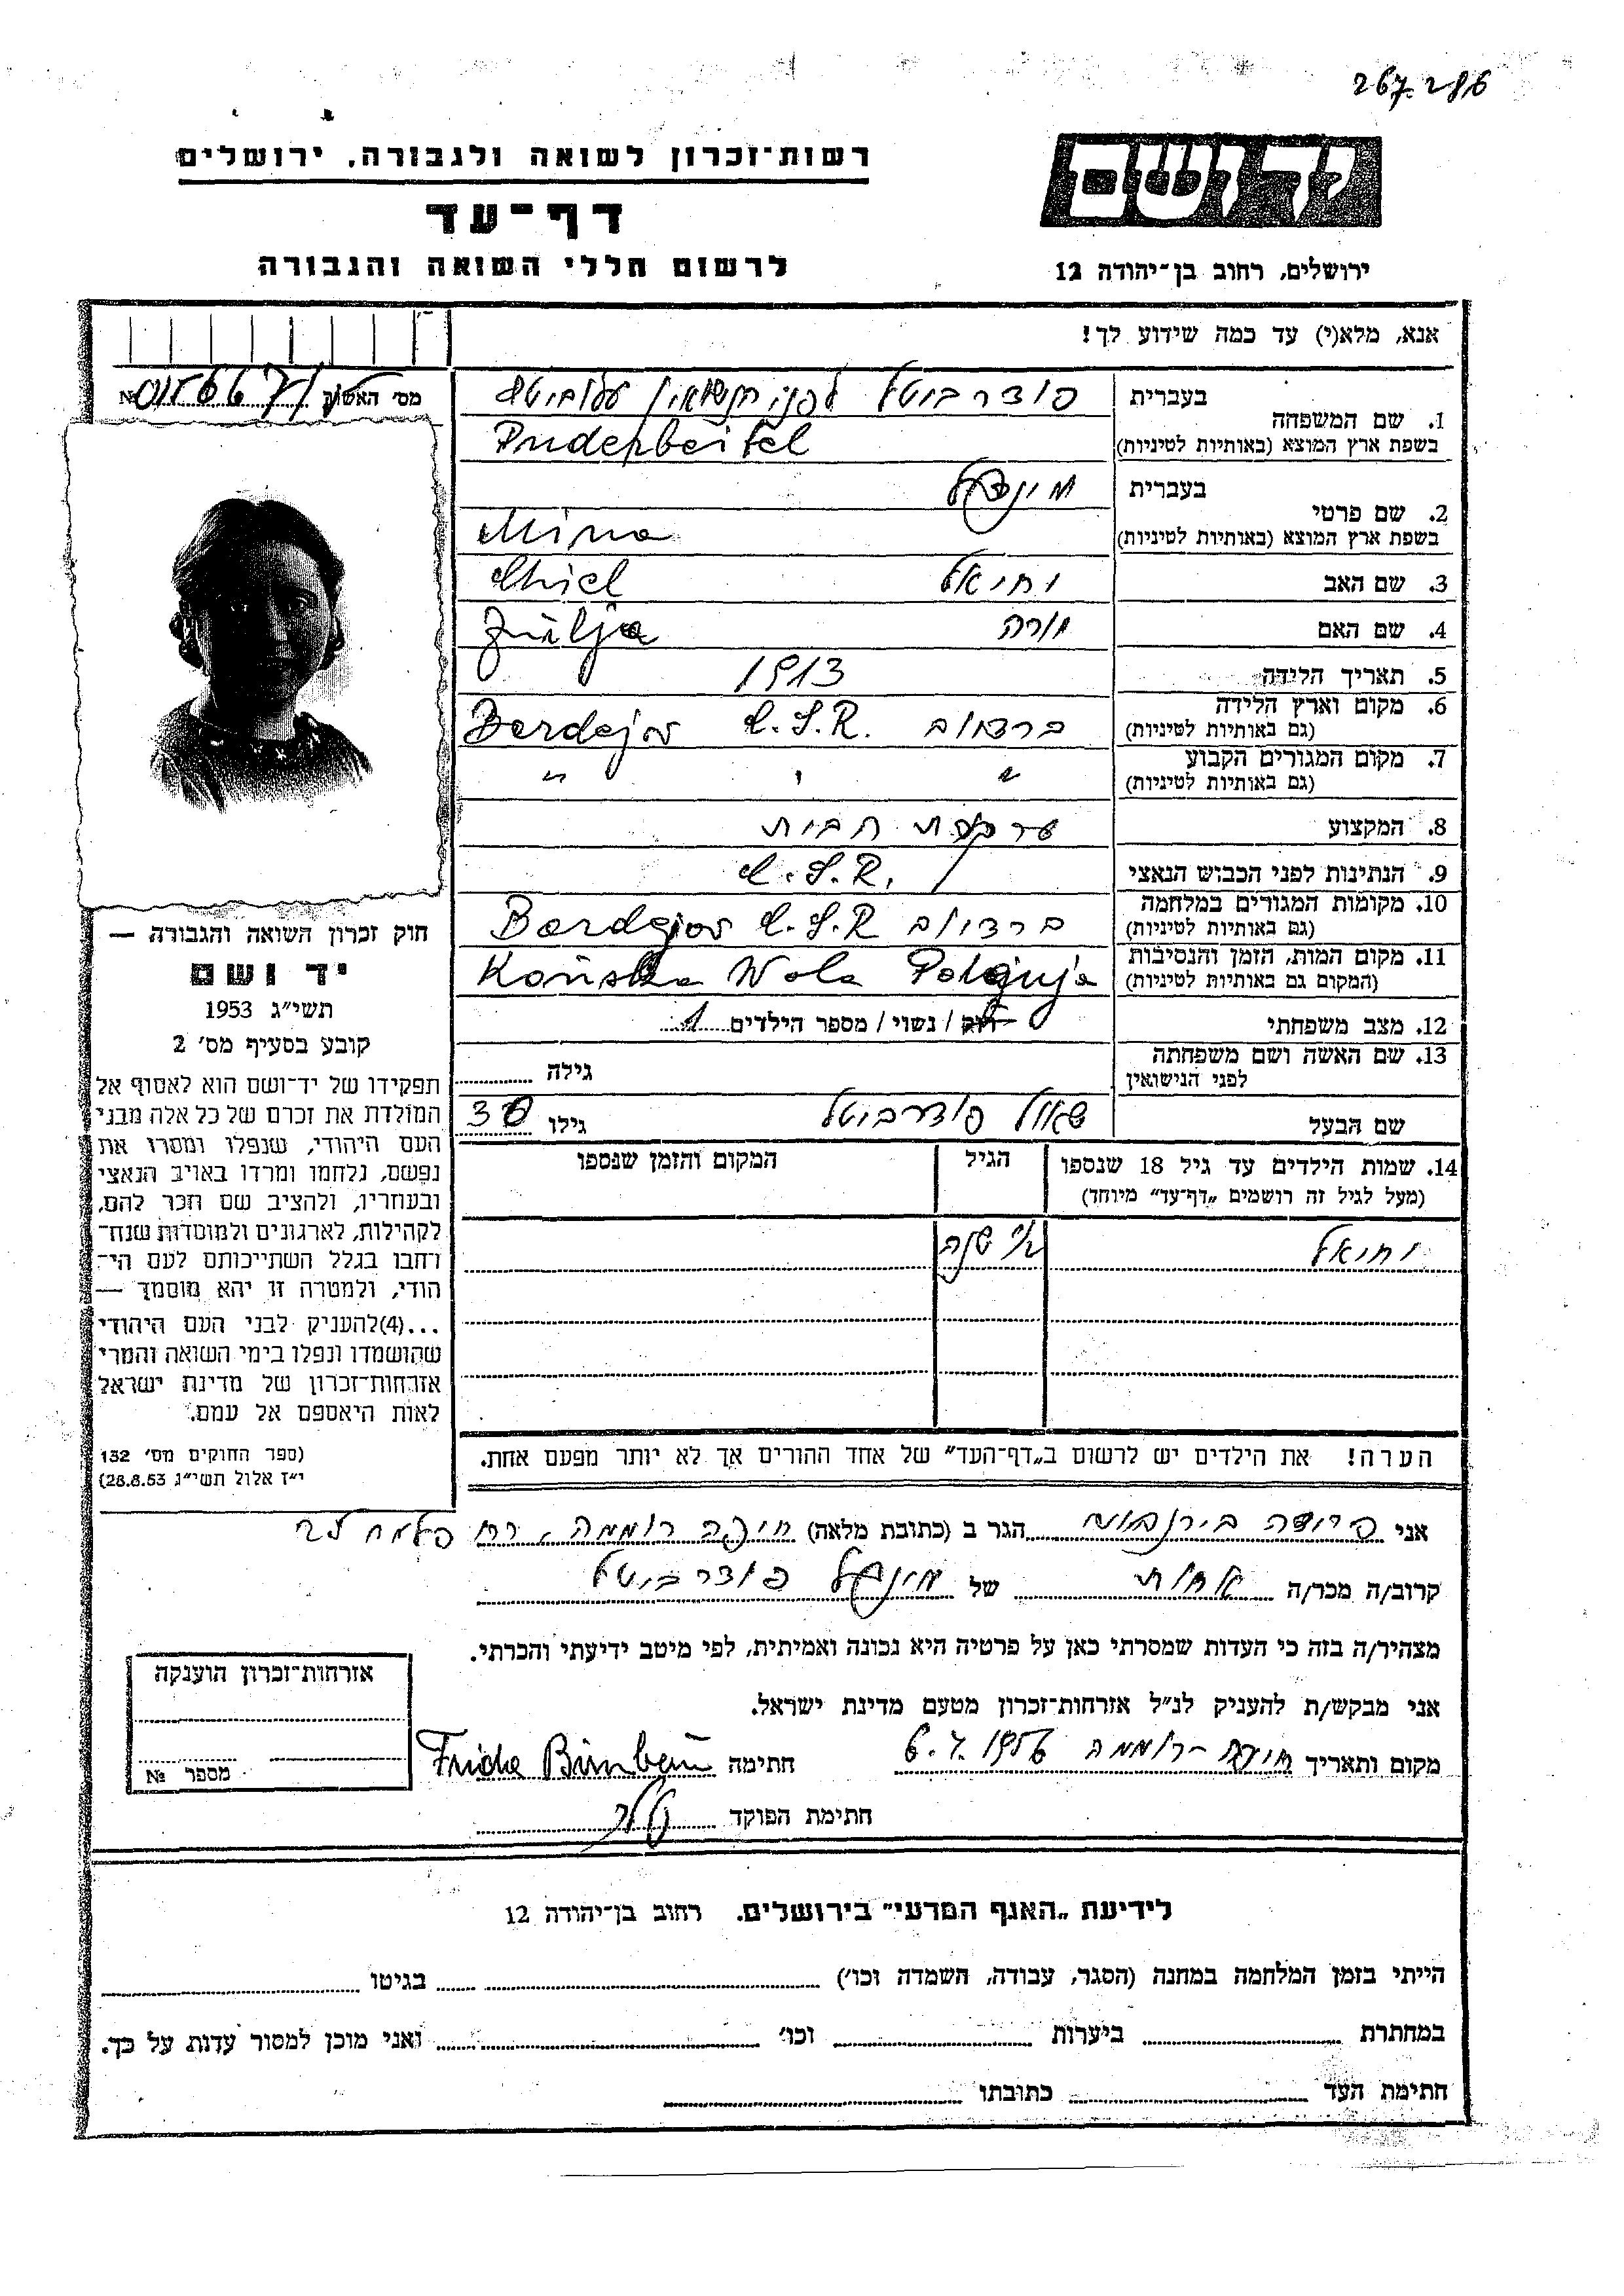 267.286
רשות־זכרון לשואה ולגבורה, ירושלים
יד ושם
דף־עד
לרשום חללי השואה והגבורה
ירושלים, רחוב בן־יהודה 12
אנא, מלא(י) עד כמה שידוע לך!
מס׳ האשוק №
1. שם המשפחה בעברית פודרביטל לפני הנשואין
בשפת ארץ המוצא (באותיות לטיניות) Puderbeitel
2. שם פרטי בעברית מינצל
בשפת ארץ המוצא (באותיות לטיניות) Mina
3. שם האב יחיאל Chiel
4. שם האם שרה
5. תאריך הלידה 1913
6. מקום וארץ הלידה (גם באותיות לטיניות) ברדיוב Č.S.R. Bardejov
7. מקום המגורים הקבוע (גם באותיות לטיניות) " " "
8. המקצוע עקרת הבית
9. הנתינות לפני הכבוש הנאצי Č.S.R.
10. מקומות המגורים במלחמה (גם באותיות לטיניות) ברדיוב Č.S.R Bardejov
11. מקום המות, הזמן והנסיבות (המקום גם באותיות לטיניות) Końska Wola
12. מצב משפחתי רוק / נשוי / מספר הילדים 1
13. שם האשה ושם משפחתה לפני הנישואין גילה
שם הבעל שאול פודרביטל גילו 30
14. שמות הילדים עד גיל 18 שנספו (מעל לגיל זה רושמים „דף־עד״ מיוחד) הגיל המקום והזמן שנספו
יחיאל שנה
הערה! את הילדים יש לרשום ב„דף־העד״ של אחד ההורים אך לא יותר מפעם אחת.
חוק זכרון השואה והגבורה —
יד ושם
תשי״ג 1953
קובע בסעיף מס׳ 2
תפקידו של יד־ושם הוא לאסוף אל
המולדת את זכרם של כל אלה מבני
העם היהודי, שנפלו ומסרו את
נפשם, נלחמו ומרדו באויב הנאצי
ובעוזריו, ולהציב שם וזכר להם,
לקהילות, לארגונים ולמוסדות שנח־
רחבו בגלל השתייכותם לעם הי־
הודי, ולמטרה זו יהא מוסמך —
...(4) להעניק לבני העם היהודי
שהושמדו ונפלו בימי השואה והמרי
אזרחות־זכרון של מדינת ישראל
לאות היאספם אל עמם.
(ספר החוקים מס׳ 132
י״ז אלול תשי״ג 28.8.53)
אני פרידה בירנבוים הגר ב (כתובת מלאה) חיפה רוממה, רח פלמח
קרוב/ה מכר/ה אחות של מינצל פודרביטל
מצהיר/ה בזה כי העדות שמסרתי כאן על פרטיה היא נכונה ואמיתית, לפי מיטב ידיעתי והכרתי.
אני מבקש/ת להעניק לנ״ל אזרחות־זכרון מטעם מדינת ישראל.
מקום ותאריך חיפה־רוממה 6.7.1956 חתימה Frida Birnbaum
חתימת הפוקד
אזרחות־זכרון הוענקה
מספר №
לידיעת „האגף המדעי״ בירושלים. רחוב בן־יהודה 12
הייתי בזמן המלחמה במחנה (הסגר, עבודה, השמדה וכו׳) בגיטו
במחתרת ביערות וכו׳ ואני מוכן למסור עדות על כך.
חתימת העד כתובתו